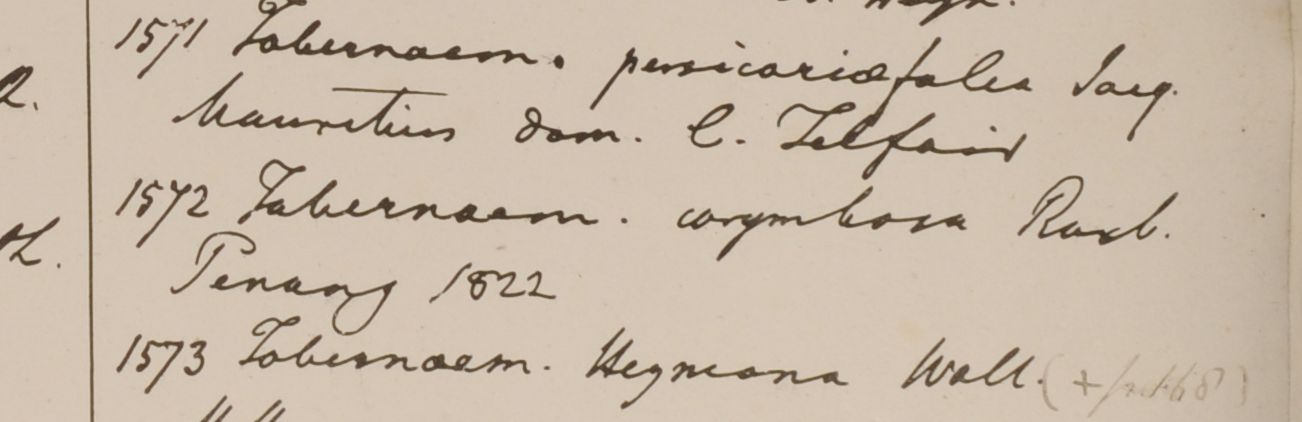 Heyn.
1571 Tabernaem. persicariæfolia Jacq.
R.
Mauritius dom. C. Telfair
1572 Tabernaem. corymbosa Roxb.
Penang 1822
1573 Tabernaem. Heyneana Wall. (+